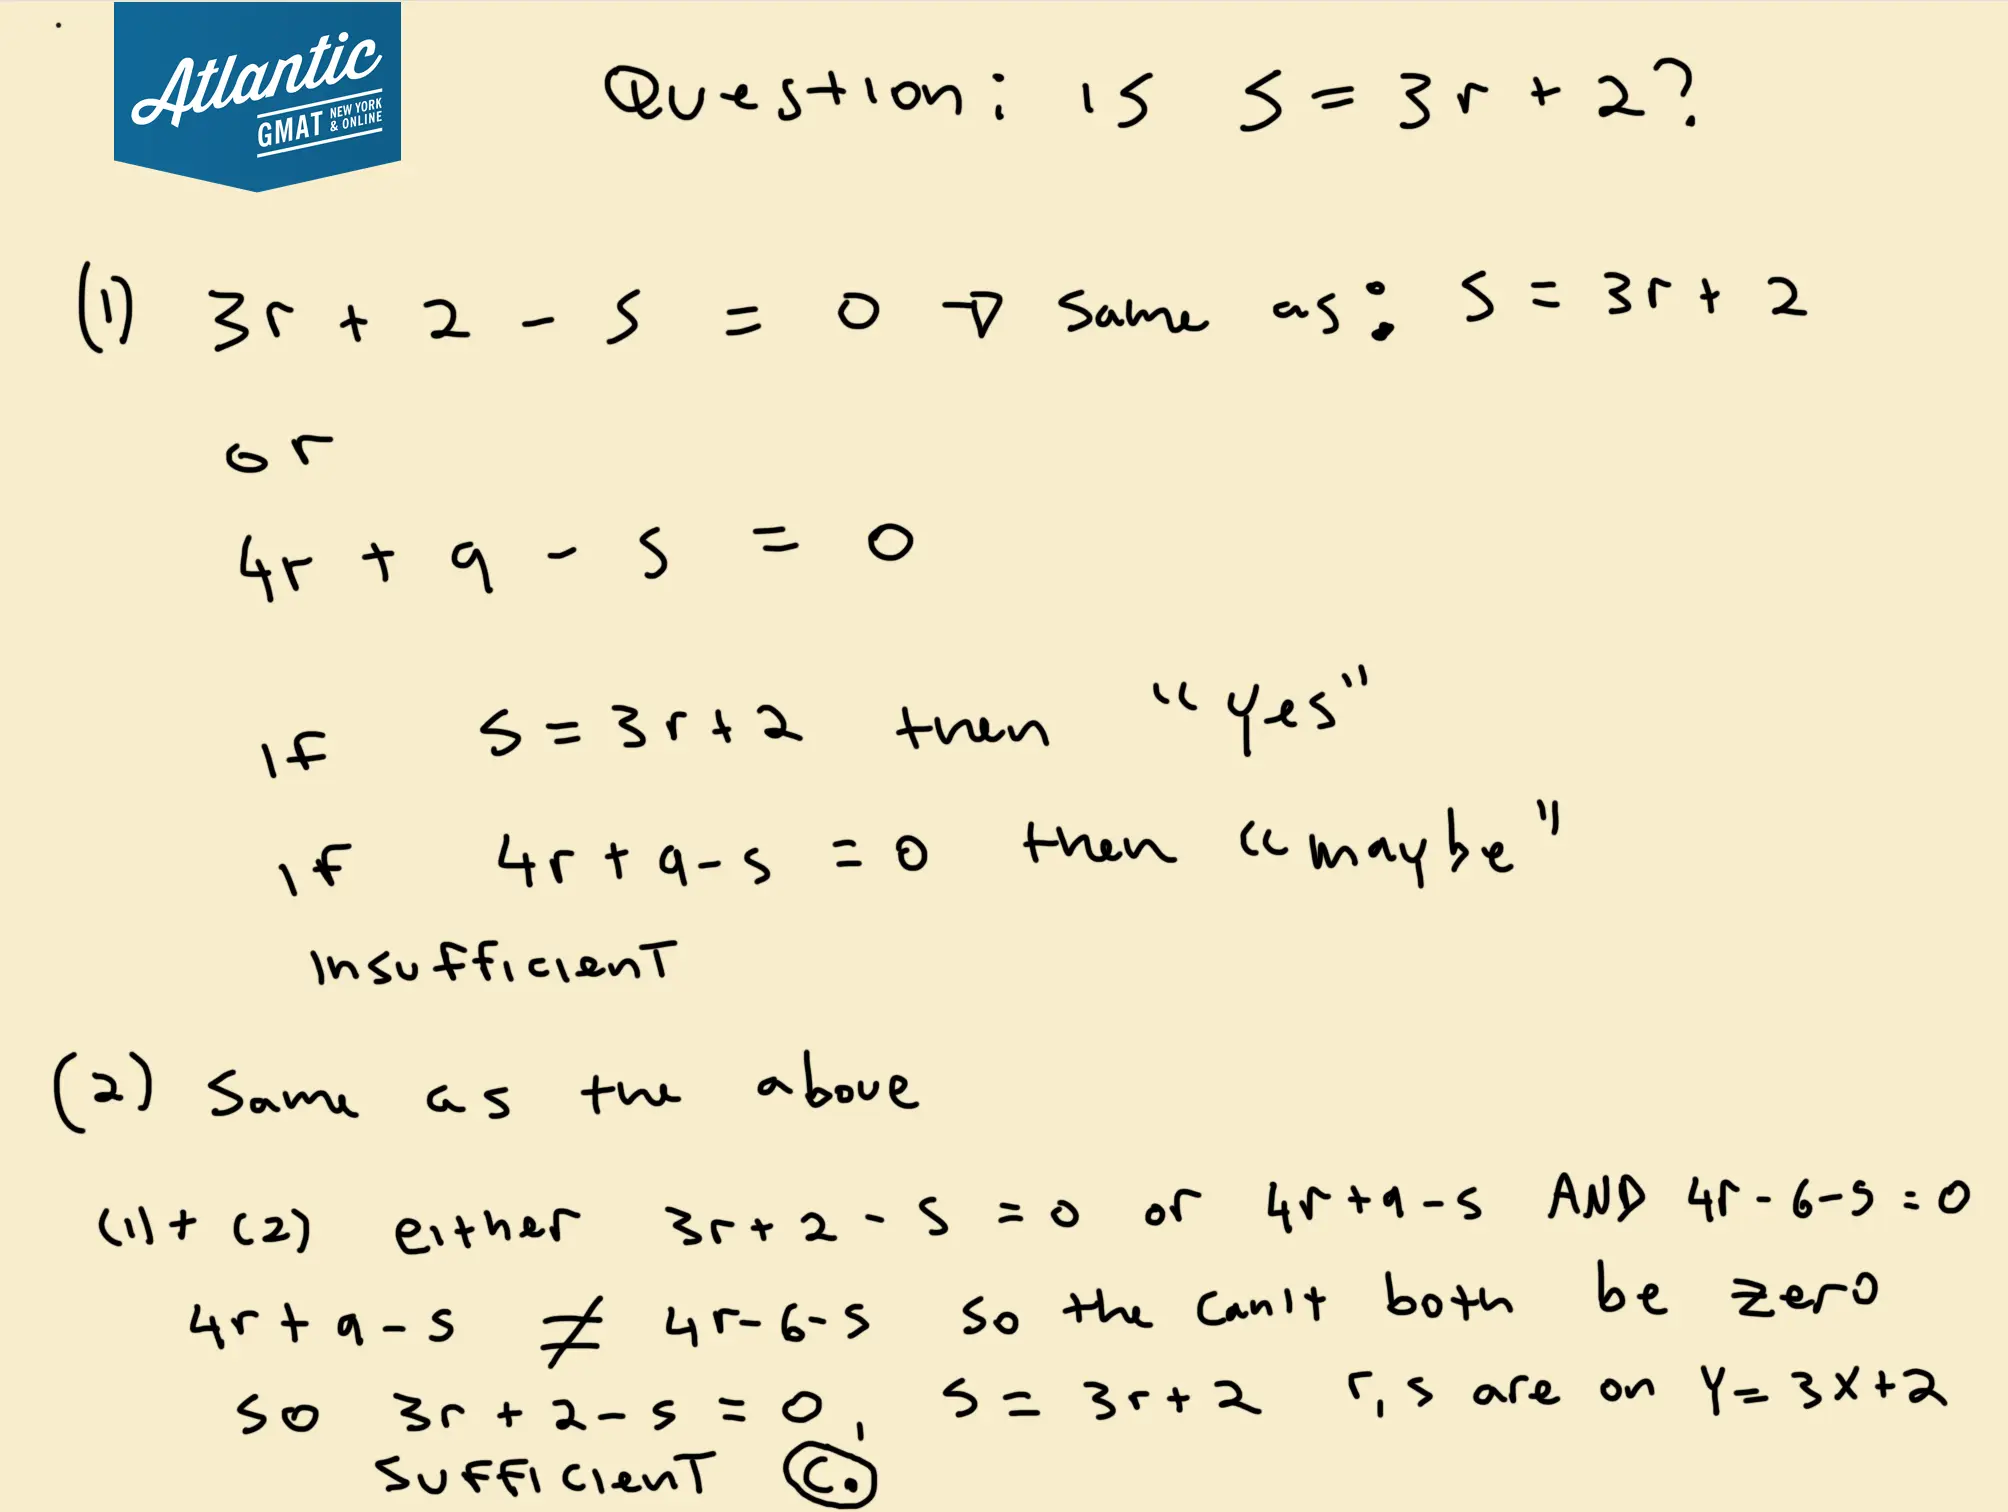 Atlantic
GMAT NEW YORK & ONLINE
Question: is s = 3r + 2?
(1) 3r + 2 - s = 0 → same as: s = 3r + 2
or
4r + 9 - s = 0
if s = 3r + 2 then "yes"
if 4r + 9 - s = 0 then "maybe"
insufficient
(2) same as the above
(1) + (2) either 3r + 2 - s = 0 or 4r + 9 - s AND 4r - 6 - s = 0
4r + 9 - s ≠ 4r - 6 - s so the can't both be zero
so 3r + 2 - s = 0, s = 3r + 2 r, s are on y = 3x + 2
sufficient C.